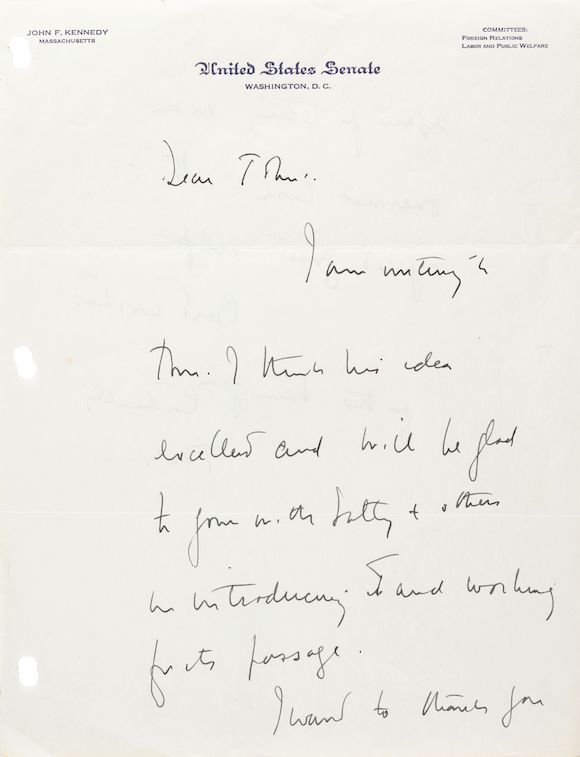 JOHN F. KENNEDY
MASSACHUSETTS
COMMITTEES:
FOREIGN RELATIONS
LABOR AND PUBLIC WELFARE
United States Senate
WASHINGTON, D. C.
Dear
I am writing to
I think his idea
excellent and will be glad
to join with & others
in introducing it and working
for its passage.
I want to thank you